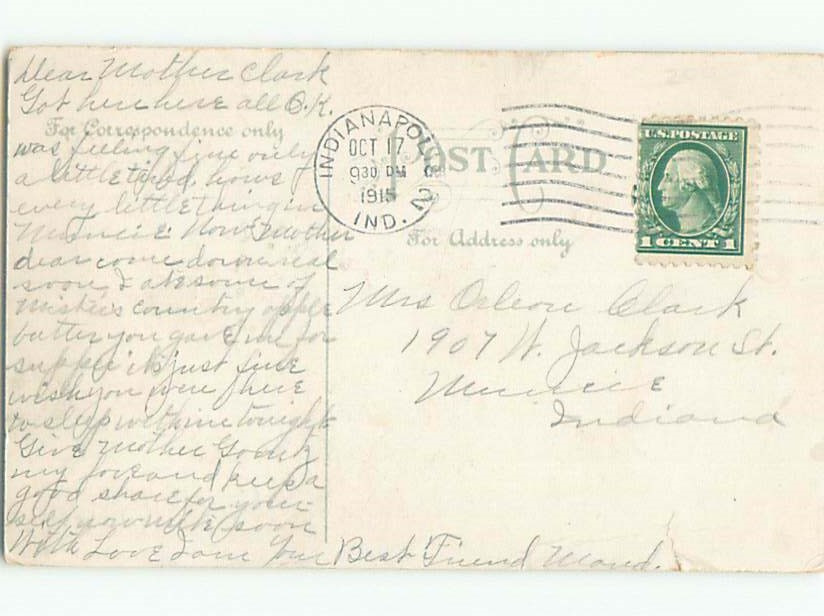 Dear Mother Clark
Got her here all O.K.
For Correspondence only
was feeling fine only
a little tired, hows
every little thing in
Muncie. Now Mother
dear come down real
soon I ate some of
country apple
butter you gave me for
supper its just fine
wish you were here
to sleep with me tonight
Give Mother
my love and keep a
good share for your-
self soon
With Love I am Your Best Friend Maud.
INDIANAPOLIS
OCT 17
930 PM
1915
IND.
2
POST CARD
For Address only
U.S. POSTAGE
1 CENT 1
Mrs Orleon Clark
1907 W. Jackson St.
Muncie
Indiana